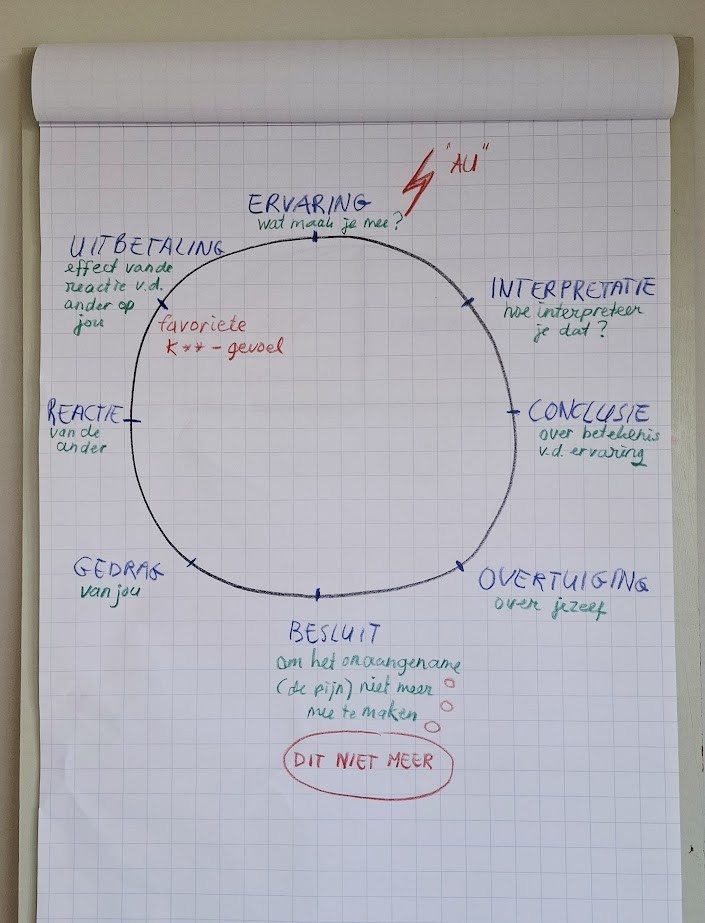 "AU"
ERVARING
wat maak je mee?
INTERPRETATIE
hoe interpreteer
je dat?
CONCLUSIE
over betekenis
v.d. ervaring
OVERTUIGING
over jezelf
BESLUIT
om het onaangename
(de pijn) niet meer
mee te maken
DIT NIET MEER
GEDRAG
van jou
REACTIE
van de
ander
UITBETALING
effect van de
reactie v.d.
ander op
jou
favoriete
K** - gevoel